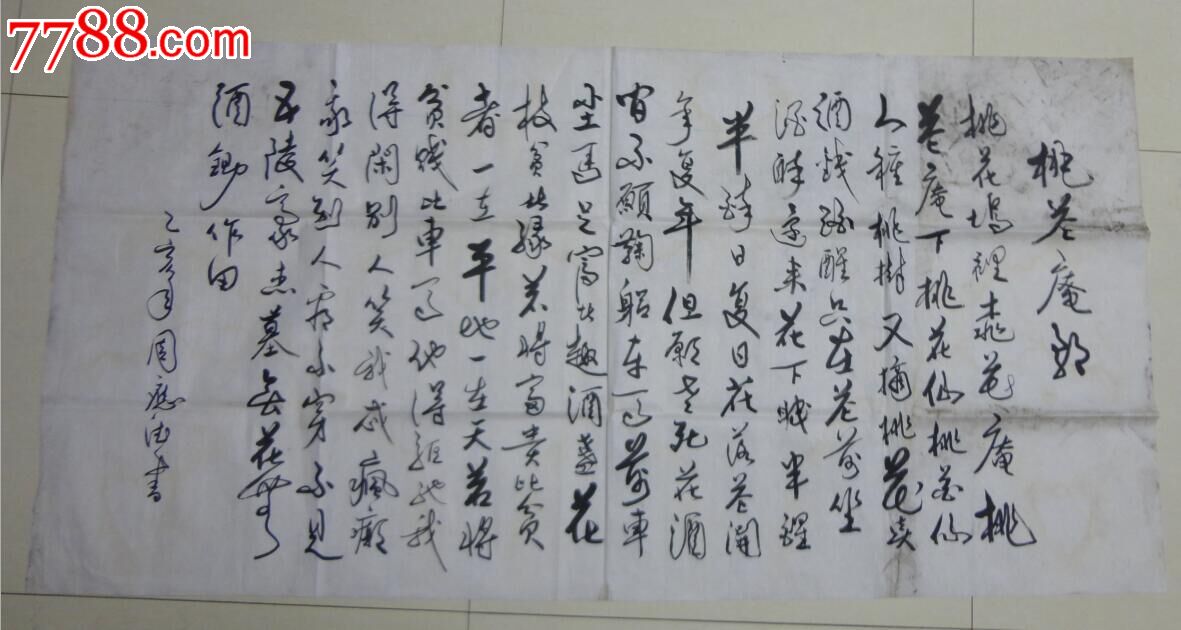 7788.com
桃花庵歌
桃花塢裡桃花庵桃
花庵下桃花仙桃花仙
人種桃樹又摘桃花賣
酒錢酒醒只在花前坐
酒醉還來花下眠半醒
半醉日复日花落花開
年复年但願老死花酒
間不願鞠躬車馬前車
塵馬足富者趣酒盞花
枝貧者緣若將富貴比貧
者一在平地一在天若將
貧賤比車馬他得驅馳我
得閑別人笑我忒瘋癲
我笑别人看不穿不見
五陵豪杰墓無花無
酒鋤作田
乙亥年周應德書